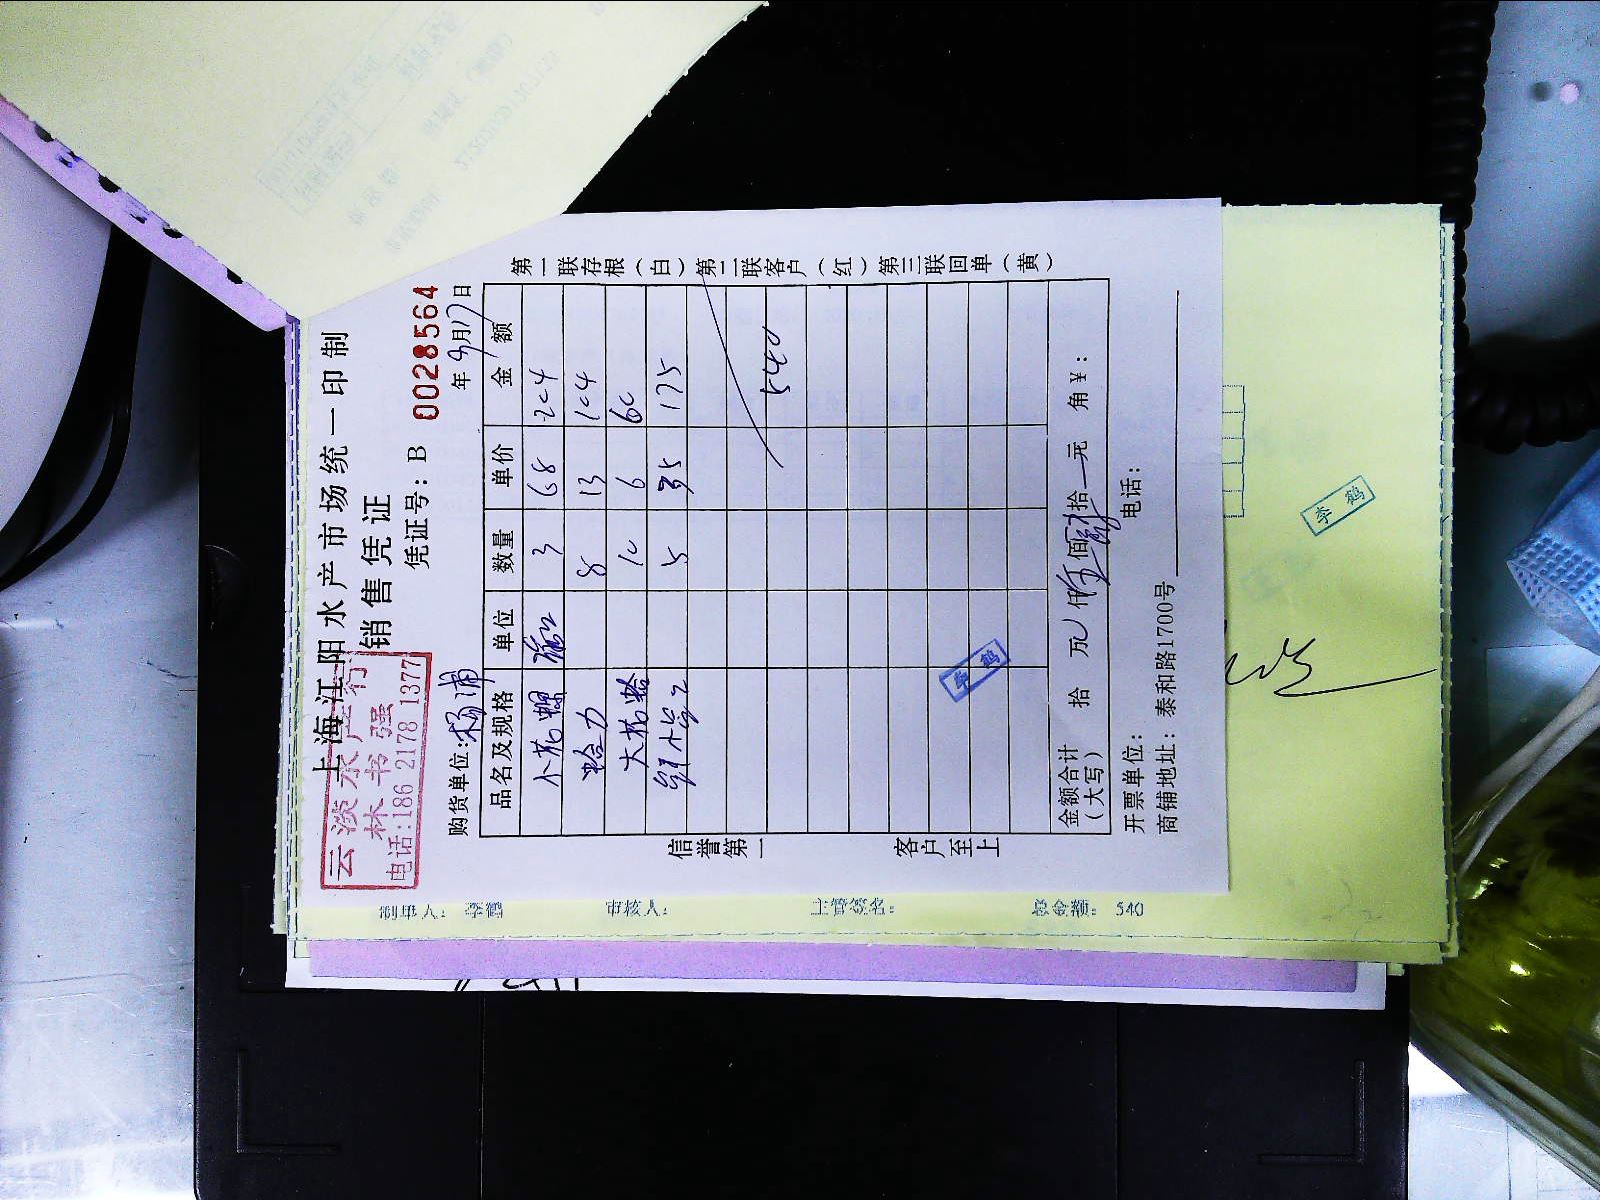 上海江阳水产市场统一印制
销售凭证
云淡水产行
林书强
电话:186 2178 1377
凭证号: B 0028564
购货单位:杨浦
年9月17日
品名及规格 单位 数量 单价 金额
小花螺 3 68 204
蛤力 8 13 104
大花蛤 10 6 60
5 35 175
540
金额合计
(大写) 拾 万 仟 佰 拾 元 角 ¥:
开票单位: 电话:
商铺地址: 泰和路1700号
第一联存根(白) 第二联客户(红) 第三联回单(黄)
信誉第一
客户至上
李鹤
李鹤
制单人: 李鹤 审核人: 主管签名: 总金额: 540